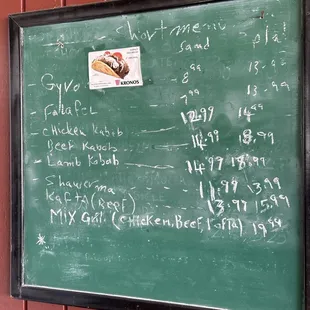 Short menu
sand plat
Gyro 8.99 13.99
KRONOS
- Falafel 7.99 13.99
- chicken Kabib 12.99 14.99
- Beef Kabob 14.99 18.99
- Lamb Kobab 14.99 18.99
Shawerma 11.99 13.99
Kafta (Beef) 13.97 15.99
Mix Gril. (chicken, Beef, Kofta) 19.99
*